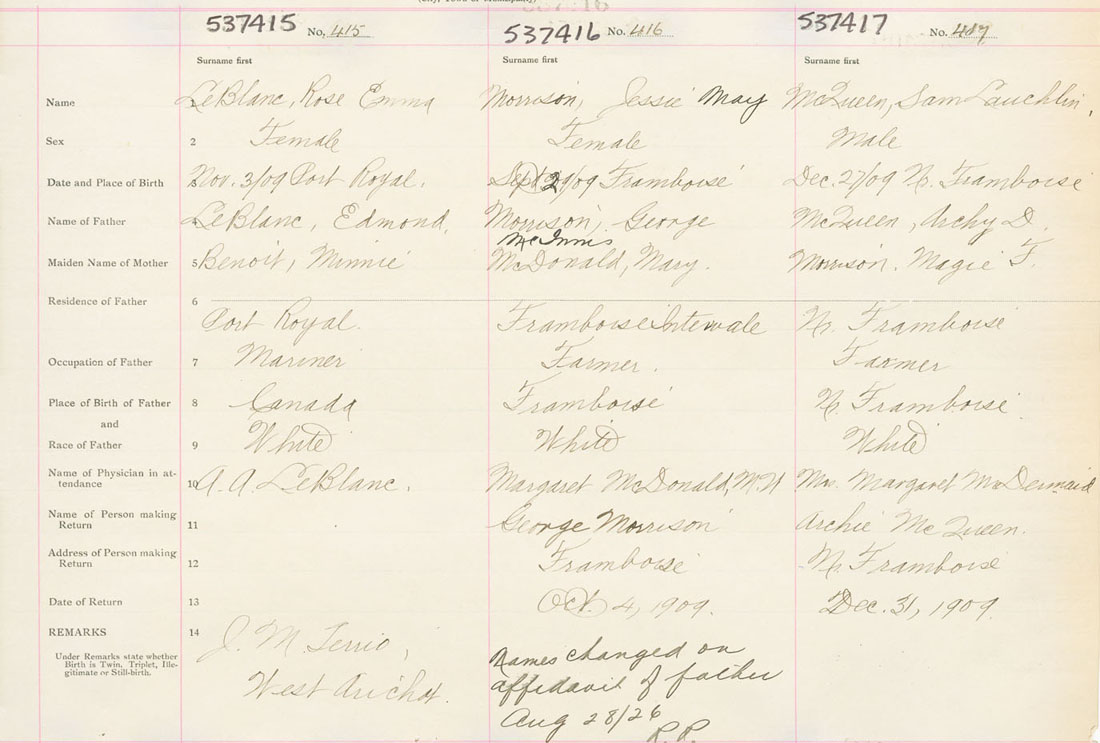 537415 No. 415 537416 No. 416 537417 No. 417
Surname first Surname first Surname first
Name 1 LeBlanc, Rose Emma Morrison, Jessie May McQueen, Sam Lauchlin,
Sex 2 Female Female Male
Date and Place of Birth 3 Nov. 3/09 Port Royal. Sept 29/09 Framboise Dec. 27/09 N. Framboise
Name of Father LeBlanc, Edmond. Morrison, George McQueen, Archy D.
McInnis
Maiden Name of Mother 5 Benoit, Minnie McDonald, Mary. Morrison. Magie F.
Residence of Father 6
Port Royal. Framboise Intervale N. Framboise
Occupation of Father 7 Mariner Farmer. Farmer
Place of Birth of Father 8 Canada Framboise N. Framboise
and
Race of Father 9 White White White
Name of Physician in at-
tendance 10 A. A. LeBlanc. Margaret McDonald, M.W Mrs. Margaret McDermaid
Name of Person making
Return 11 George Morrison Archie McQueen.
Address of Person making
Return 12 Framboise N. Framboise
Date of Return 13 Oct. 4, 1909. Dec. 31, 1909.
REMARKS 14 J. M. Terrio,
Under Remarks state whether
Birth is Twin, Triplet, Ille-
gitimate or Still-birth.
West Arichat.
Names changed on
affidavit of father
Aug 28/26
R.R.